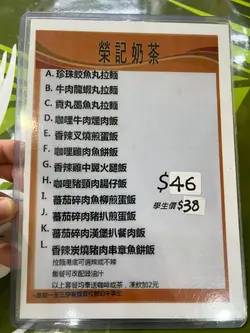 榮記奶茶
A. 珍珠餃魚丸拉麵
B. 牛肉龍蝦丸拉麵
C. 貢丸墨魚丸拉麵
D. 咖哩牛肉煙肉飯
E. 香辣叉燒煎蛋飯
F. 咖哩雞肉魚餅飯
G. 香辣雞中翼火腿飯
H. 咖哩豬頸肉腸仔飯
I. 蕃茄碎肉魚柳煎蛋飯
J. 蕃茄碎肉豬扒煎蛋飯
K. 蕃茄碎肉漢堡扒餐肉飯
L. 香辣炭燒豬肉串章魚餅飯
$46
學生價$38
拉麵湯底可選辣或不辣
飯餐可改配豉油汁
以上套餐均奉送咖啡或茶，凍飲加2元